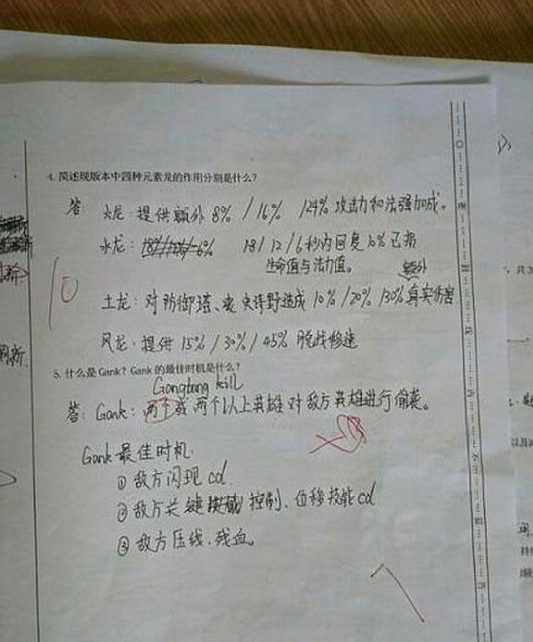 4. 简述现版本中四种元素龙的作用分别是什么?
答: 火龙: 提供额外 8% / 16% /24% 攻击力和法强加成。
水龙: 18 / 12 / 6 秒内回复 10% 已损
生命值与法力值。 额外
10
土龙: 对防御塔、 史诗野造成 10% /20% /30% 真实伤害
风龙: 提供 15% / 30% / 45% 脱战移速
5. 什么是 Gank? Gank 的最佳时机是什么?
Gangbang kill
答: Gank: 两个或两个以上英雄对敌方英雄进行偷袭。
Gank 最佳时机
① 敌方闪现 cd.
② 敌方关键 控制、位移技能 cd
③ 敌方压线、残血。